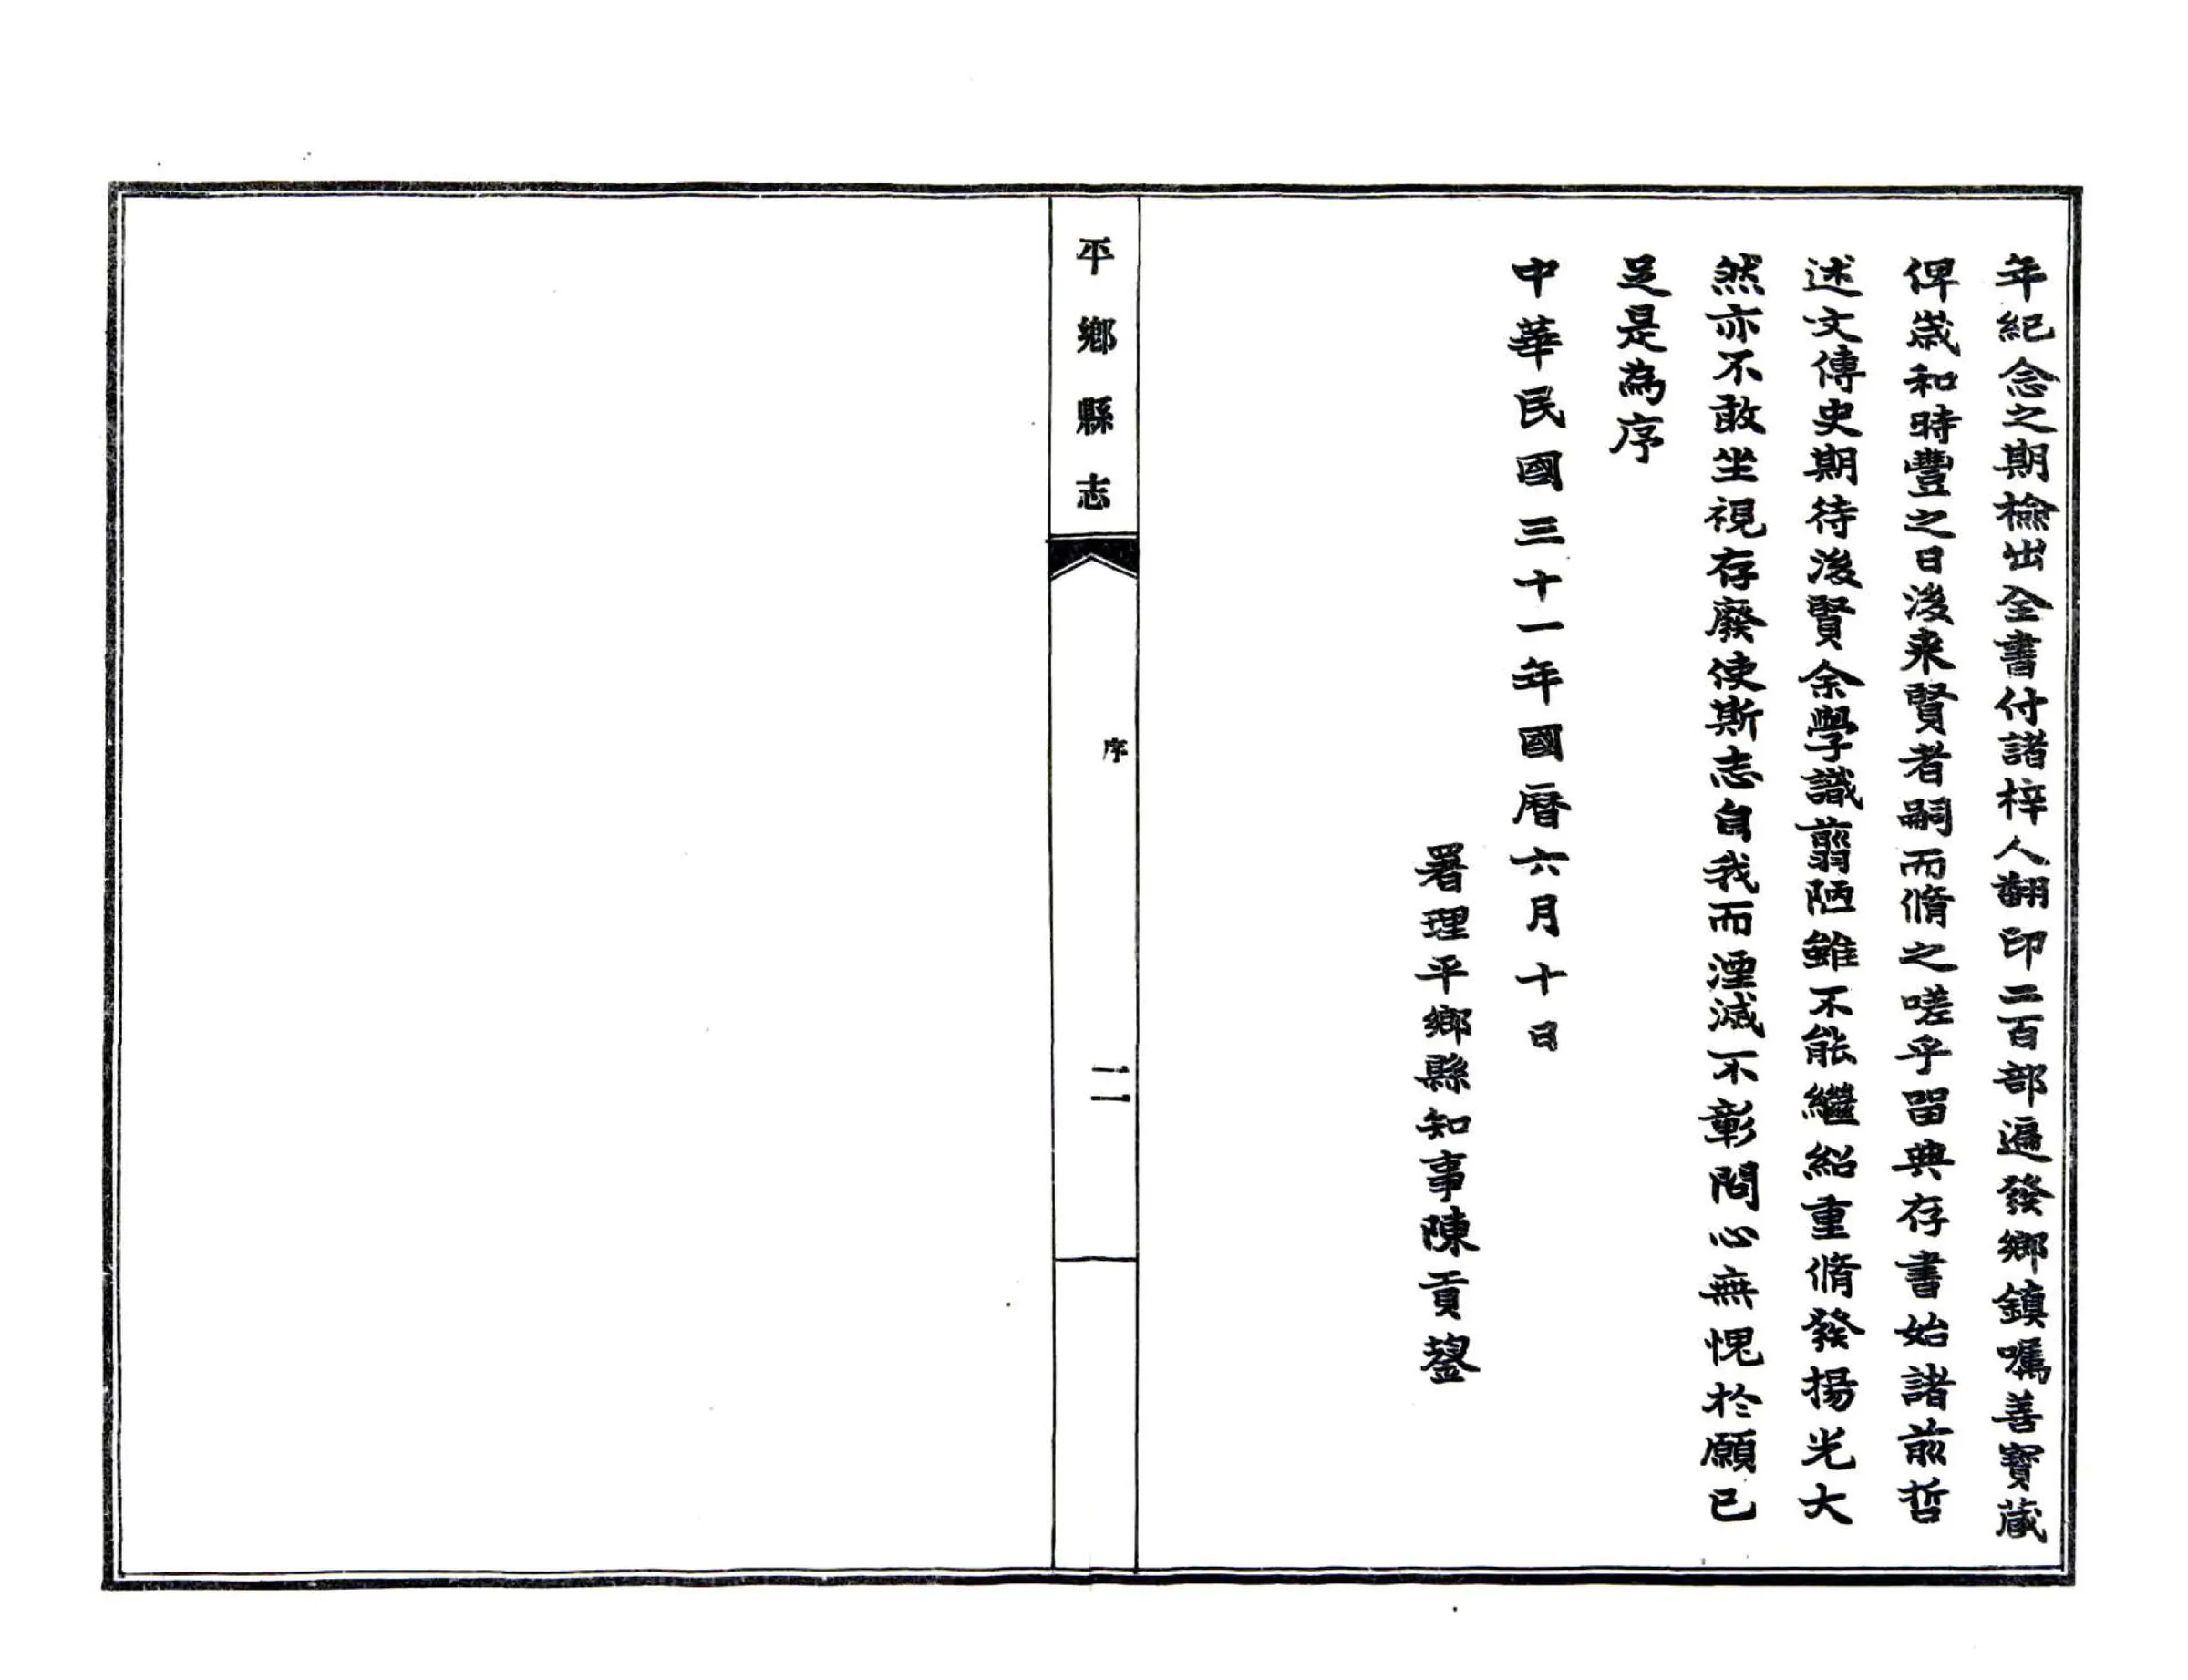 年紀念之期檢出全書付諸梓人翻印二百部遍發鄉鎮囑善寶藏
俾歲和時豐之日後來賢者嗣而脩之嗟乎留典存書始諸前哲
述文傳史期待後賢余學識翦陋雖不能繼紹重脩發揚光大
然亦不敢坐視存廢使斯志自我而湮滅不彰問心無愧於願已
足是為序
中華民國三十一年國曆六月十日
署理平鄉縣知事陳貢鋆
平鄉縣志
序
二